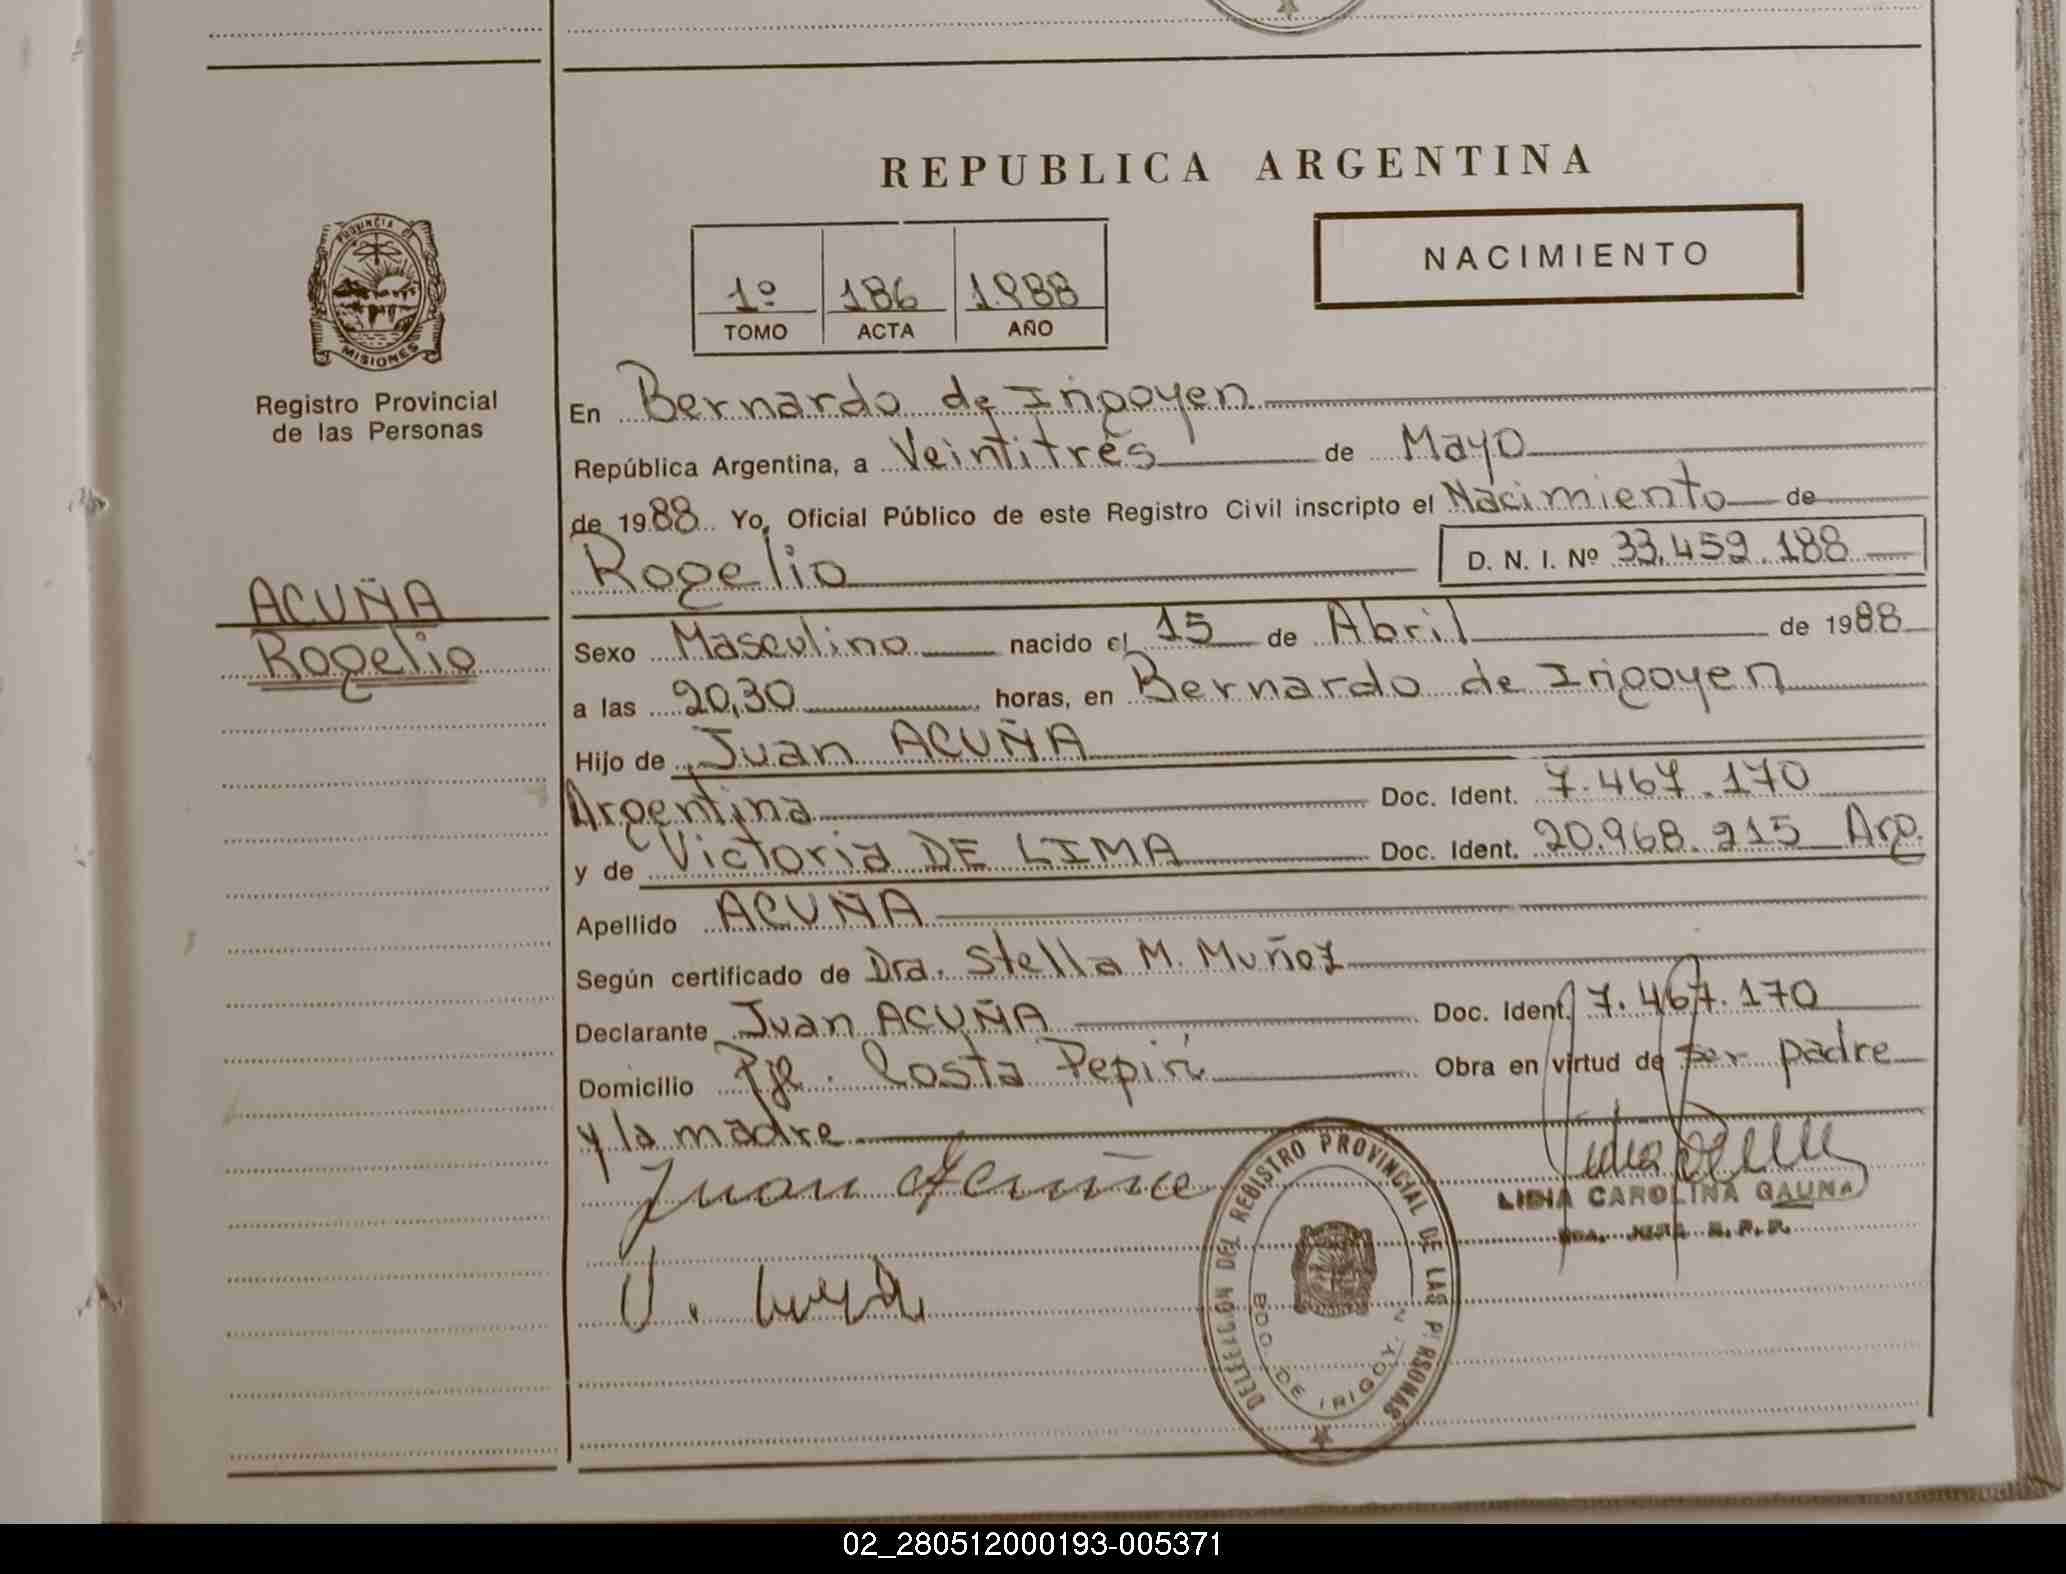 REPUBLICA ARGENTINA
NACIMIENTO
1º 186 1.988
TOMO ACTA AÑO
PROVINCIA DE
MISIONES
Registro Provincial
de las Personas
ACUÑA
Rogelio
En Bernardo de Irigoyen
República Argentina, a Veintitrés de Mayo
de 1988 Yo, Oficial Público de este Registro Civil inscripto el Nacimiento de
Rogelio D. N. I. Nº 33.459.188
Sexo Masculino nacido el 15 de Abril de 1988
a las 20,30 horas, en Bernardo de Irigoyen
Hijo de Juan ACUÑA
Argentina Doc. Ident. 7.467.170
y de Victoria DE LIMA Doc. Ident. 20.968.215 Arg.
Apellido ACUÑA
Según certificado de Dra. Stella M. Muñoz
Declarante Juan ACUÑA Doc. Ident. 7.467.170
Domicilio Pje. Costa Pepirí Obra en virtud de ser padre
y la madre
Juan Acuña
LIDIA CAROLINA GAUNA
DELEGACION DEL REGISTRO PROVINCIAL DE LAS PERSONAS
BDO. DE IRIGOYEN
02_280512000193-005371